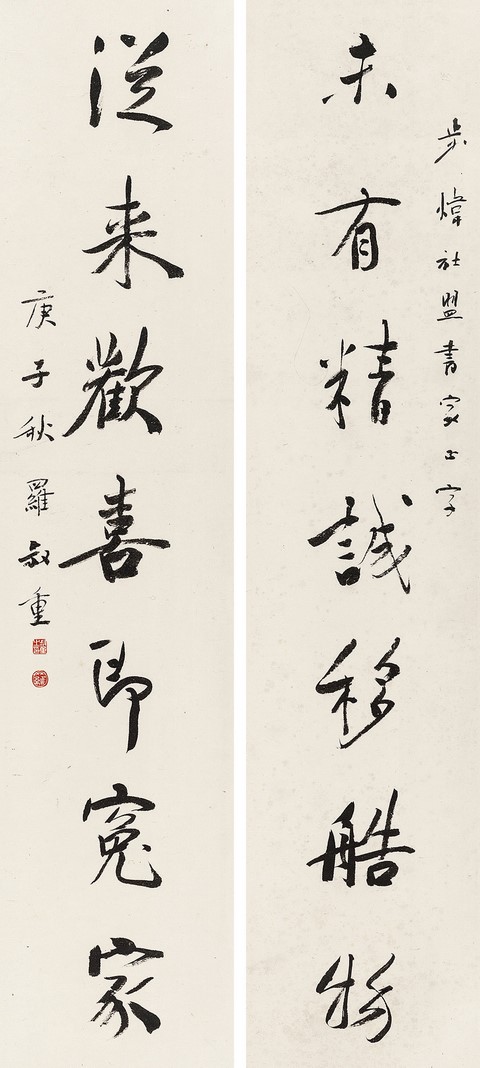 步煒社盟書家正字
未有精誠移艁物
従来歡喜即寃家
庚子秋羅叔重